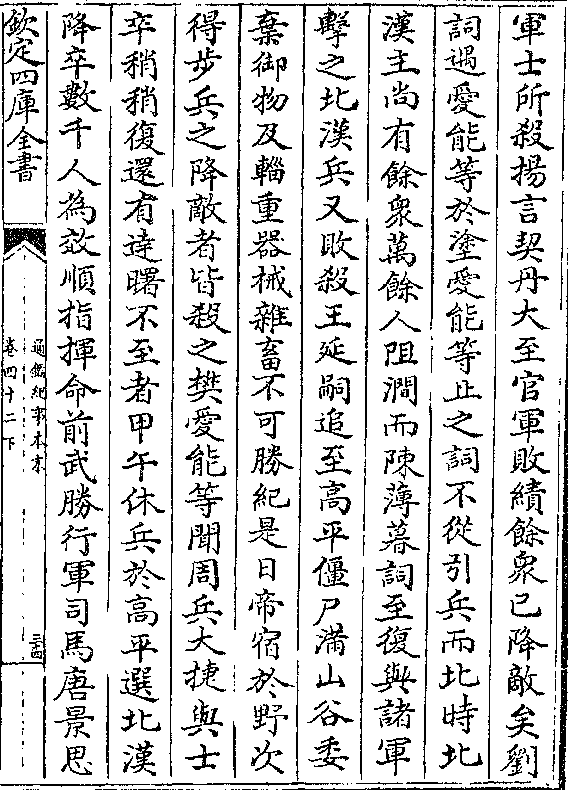 軍士所殺揚言契丹大至官軍敗績餘衆已降敵矣劉
詞遇愛能等於塗愛能等止之詞不從引兵而北時北
漢主尚有餘衆萬餘人阻澗而陳薄暮詞至復與諸軍
擊之北漢兵又敗殺王延嗣追至高平僵尸滿山谷委
棄御物及輜重器械雜畜不可勝紀是日帝宿於野次
得步兵之降敵者皆殺之樊愛能等聞周兵大捷與士
卒稍稍復還有逹曙不至者甲午休兵於高平選北漢
降卒數千人為效順指揮命前武勝行軍司馬唐景思
欽定四庫全書
通鑑紀事本末
卷四十二下
三四